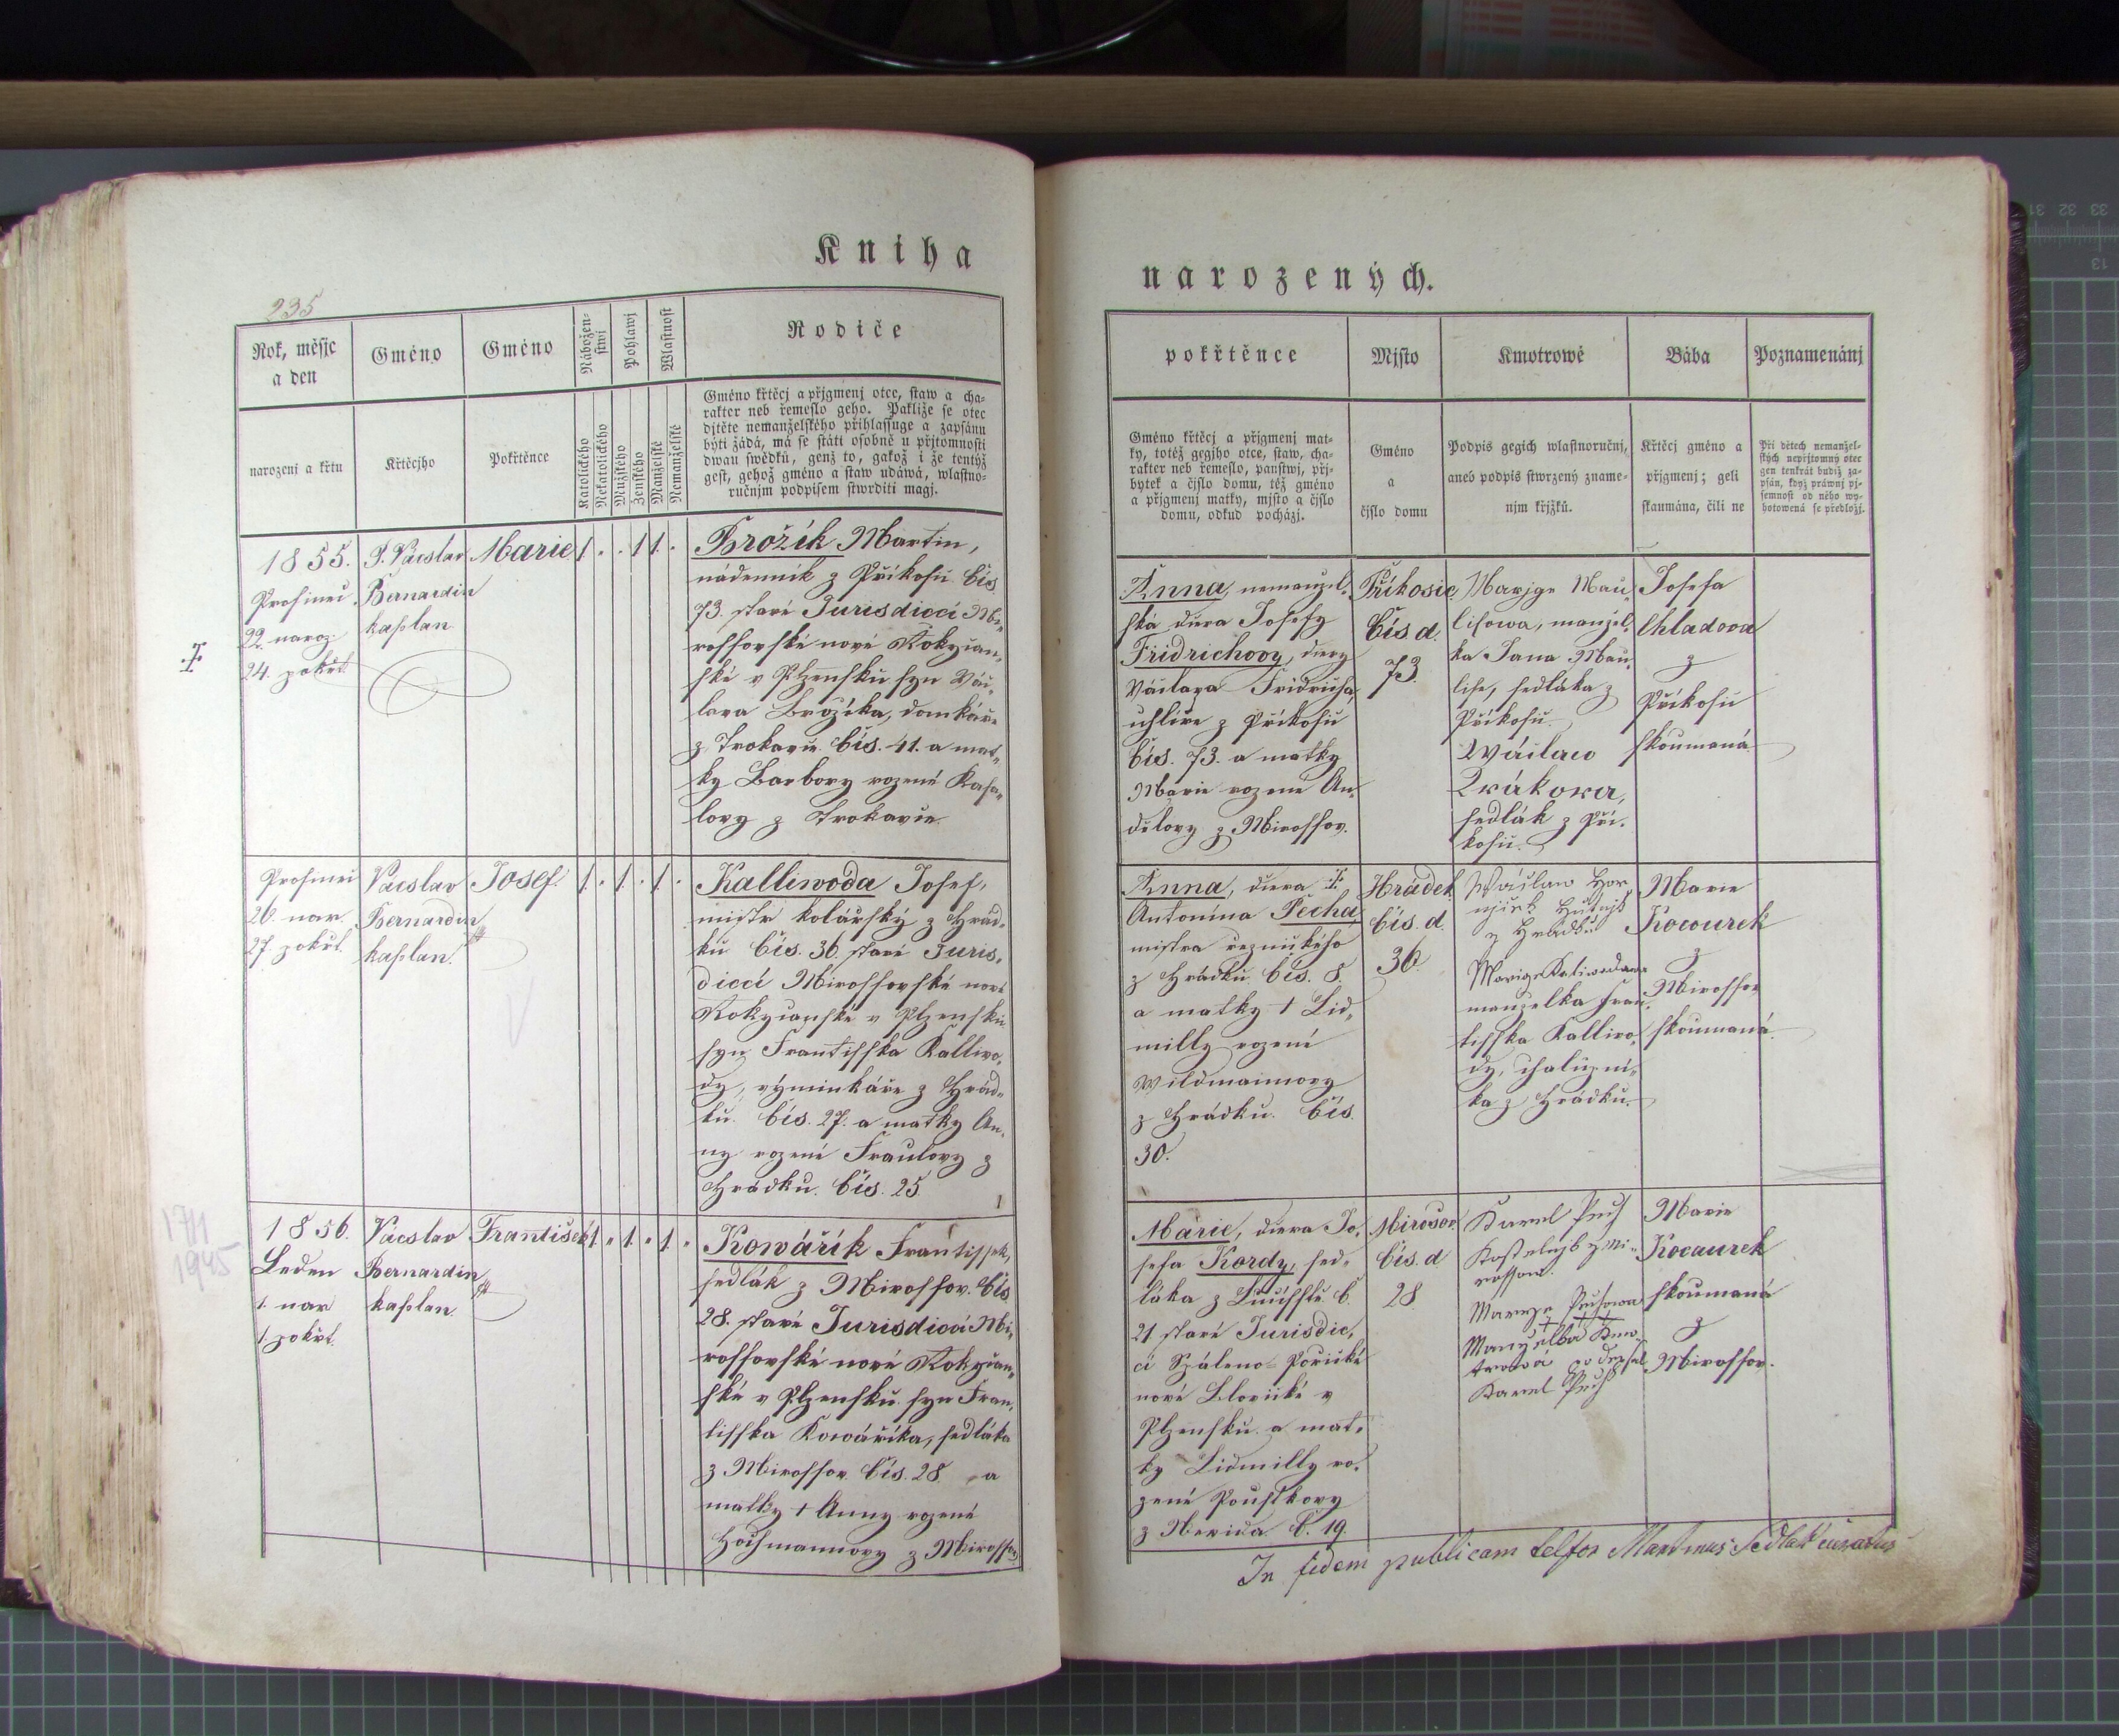 Kniha
narozených.
235
Rok, měsjc
a den
Gméno
Gméno
Nábožen-
stwi
Pohlawj
Wlastnost
Rodiče
narozenj a křtu
Křtěcjho
Pokřtěnce
Katolického
Nekatolického
Mužského
Ženského
Manželské
Nemanželské
Gméno křtěcj a přjgmenj otce, staw a cha-
rakter neb řemeslo geho. Pakliže se otec
djtěte nemanželského přihlassuge a zapsánu
býti žádá, má se státi osobně u přjtomnosti
dwau swědků, genž to, gakož i že tentýž
gest, gehož gméno a staw udáwá, wlastno-
ručnjm podpisem stwrditi magj.
1855.
Prosinci
22. naroz.
24. pokřt.
P. Vácslav
Bernardin
kaplan
Marie
1 . . 1 1 .
Brožík Martin,
nádenník z Příkosic čís
73. staré Jurisdiccí Mi-
rossovské nové Rokycan-
ské v Plzensku syn Vác-
lava Brožíka, domkáře
z Trokavce čís. 41. a mat-
ky Barbory rozené Kasa-
lovy z Trokavce
Prosinci
26. nar.
27. pokřt.
Vácslav
Bernardin
kaplan.
Josef.
1 . 1 . 1 .
Kalliwoda Josef,
mistr kolářský z Hrád-
ku čís. 36. staré Juris-
diccí Mirossovské nové
Rokycanské v Plzensku
syn Frantisska Kallivo-
dy, výminkáře z Hrád-
ku čís. 27. a matky An-
ny rozené Fraulovy z
Hrádku. čís. 25
1711
1945
1856.
Leden
1. nar
1. pokřt.
Vácslav
Bernardin
kaplan.
František
1 . 1 . 1 .
Kowářík Frantissek,
sedlák z Mirossov. čís
28. staré Jurisdiccí Mi-
rossovské nové Rokycan-
ské v Plzensku syn Fran-
tisska Kowáříka, sedláka
z Mirossov čís. 28 a
matky + Anny rozené
Hochmannovy z Mirossov
pokřtěnce
Mjsto
Kmotrowé
Bába
Poznamenánj
Gméno křtěcj a přjgmenj mat-
ky, totéž gegjho otce, staw, cha-
rakter neb řemeslo, panstwj, přj-
bytek a čjslo domu, též gméno
a přjgmenj matky, mjsto a čjslo
domu, odkud pocházj.
Gméno
a
čjslo domu
Podpis gegich wlastnoručnj,
aneb podpis stwrzený zname-
njm křjžků.
Křtěcj gméno a
přjgmenj; geli
skaumána, čili ne
Při dětech nemanžel-
ských nepřjtomný otec
gen tenkrát budiž za-
psán, když práwnj pj-
semnost od něho wy-
hotowená se předložj.
Anna, nemanžel-
ská dcera Josefy
Fridrichovy, dcery
Václava Fridricha,
uhlíře z Příkosic
čís. 73. a matky
Marie rozené An-
dělovy z Mirossov.
Příkosic
čís d.
73.
Marjge Mau-
lisowa, manžel-
ka Jana Mau-
lise, sedláka z
Příkosic
Wáclaw
Zrákora,
sedlák z Pří-
kosic.
Josefa
Chladova
z
Příkosic
skoumaná
Anna, dcera
Antonína Pecha,
mistra řeznického
z Hrádku čís. 8.
a matky + Lid-
milly rozené
Wildmaimovy
z Hrádku. čís.
30.
Hrádek
čís. d.
36.
Wáclaw Hor-
z Hrádku
Marige Kaliwodowa
manželka Fran-
tisska Kallivo-
dy, chalupní-
ka z Hrádku.
Marie
Kocourek
z
Mirossov
skoumaná.
Marie, dcera Jo-
sefa Kordy, sed-
láka z č.
21 staré Jurisdic-
cí Spáleno-Pořické
nové Blovické v
Plzensku a mat-
ky Lidmilly ro-
zené Poustkovy
z č. 19.
Mirossov
čís. d
28
Karel Puch
Kostelnjk z Mi-
rossow.
Maryze Puchowa
+++
Manzelka Kmo-
trowá podepsal
Karel Puch
Marie
Kocaurek
skoumaná
z
Mirossov.
In fidem publicam testor Martinus Sedlak curatus